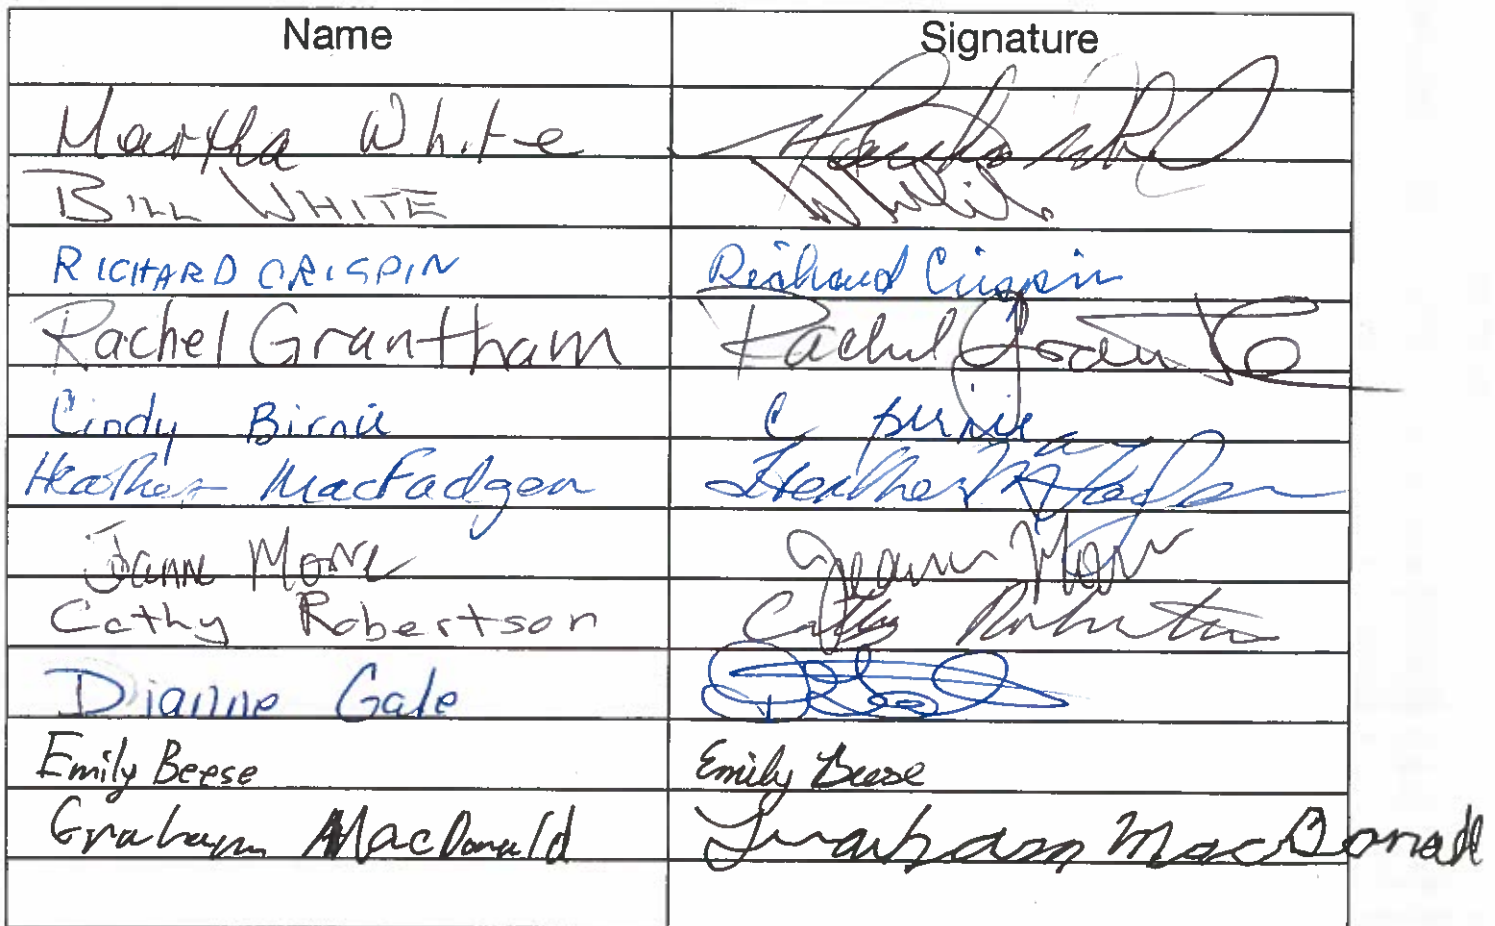 Name Signature
Martha White
Bill White
RICHARD CRISPIN Richard Crispin
Rachel Grantham Rachel
Cindy Birnie C Birnie
Heather MacFadgen Heather
Cathy Robertson Cathy Robertson
Dianne Gale
Emily Beese Emily Beese
Graham MacDonald Graham MacDonald